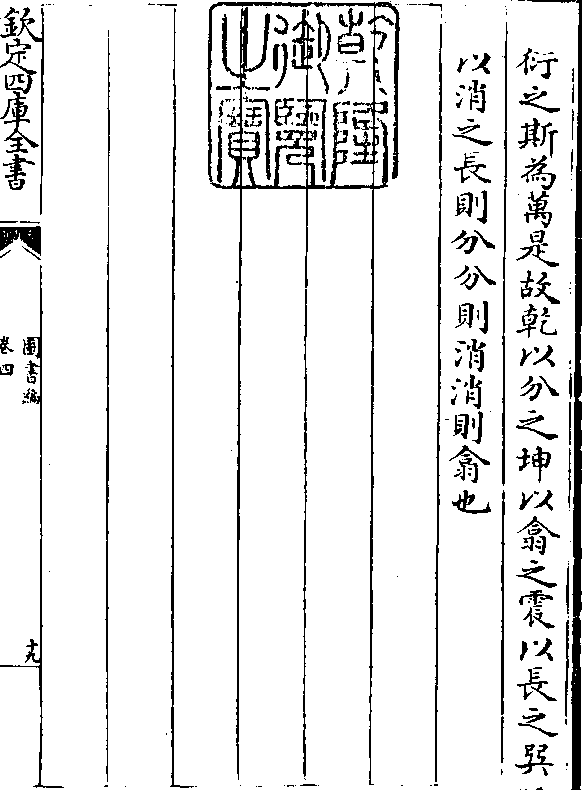 衍之斯為萬是故乾以分之坤以翕之震以長之巽
以消之長則分分則消消則翕也
乾隆御覽之寶
欽定四庫全書
圖書編
卷四
十九